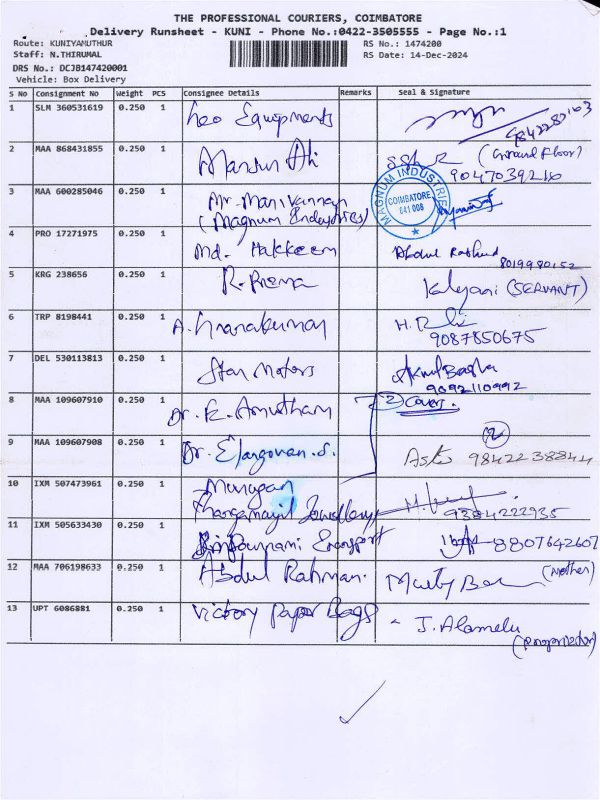 THE PROFESSIONAL COURIERS, COIMBATORE
Delivery Runsheet - KUNI - Phone No.:0422-3505555 - Page No.:1
Route: KUNIYAMUTHUR
RS No.: 1474200
Staff: N.THIRUMAL
RS Date: 14-Dec-2024
DRS No.: DCJB147420001
Vehicle: Box Delivery
S No Consignment No Weight PCS Consignee Details Remarks Seal & Signature
1 SLM 360531619 0.250 1 Leo Equipments
2 MAA 868431855 0.250 1 Mansur Ali (Ground floor)
9047039216
3 MAA 600285046 0.250 1 Mr. Manivannan
(Magnum Industries)
MAGNUM INDUSTRIES
COIMBATORE
641 008
4 PRO 17271975 0.250 1 Md. Hakkeem Abdul Rashid
8019980152
5 KRG 238656 0.250 1 R. Prema Kalyani (SERVANT)
6 TRP 8198441 0.250 1 A. Gnanakumar
9087850675
7 DEL 530113813 0.250 1 Star Motors
9092110992
8 MAA 109607910 0.250 1 Dr. K. Amutham (2) Covers.
9 MAA 109607908 0.250 1 Dr. Elangovan. S. (2)
9842238844
10 IXM 507473961 0.250 1 Murugan
Thangamayil Jewellery
9384222935
11 IXM 505633430 0.250 1 Transport 8807642607
12 MAA 706198633 0.250 1 Abdul Rahman. (Mother)
13 UPT 6086881 0.250 1 Victory Paper Bags J. Alamelu
(Proprietor)